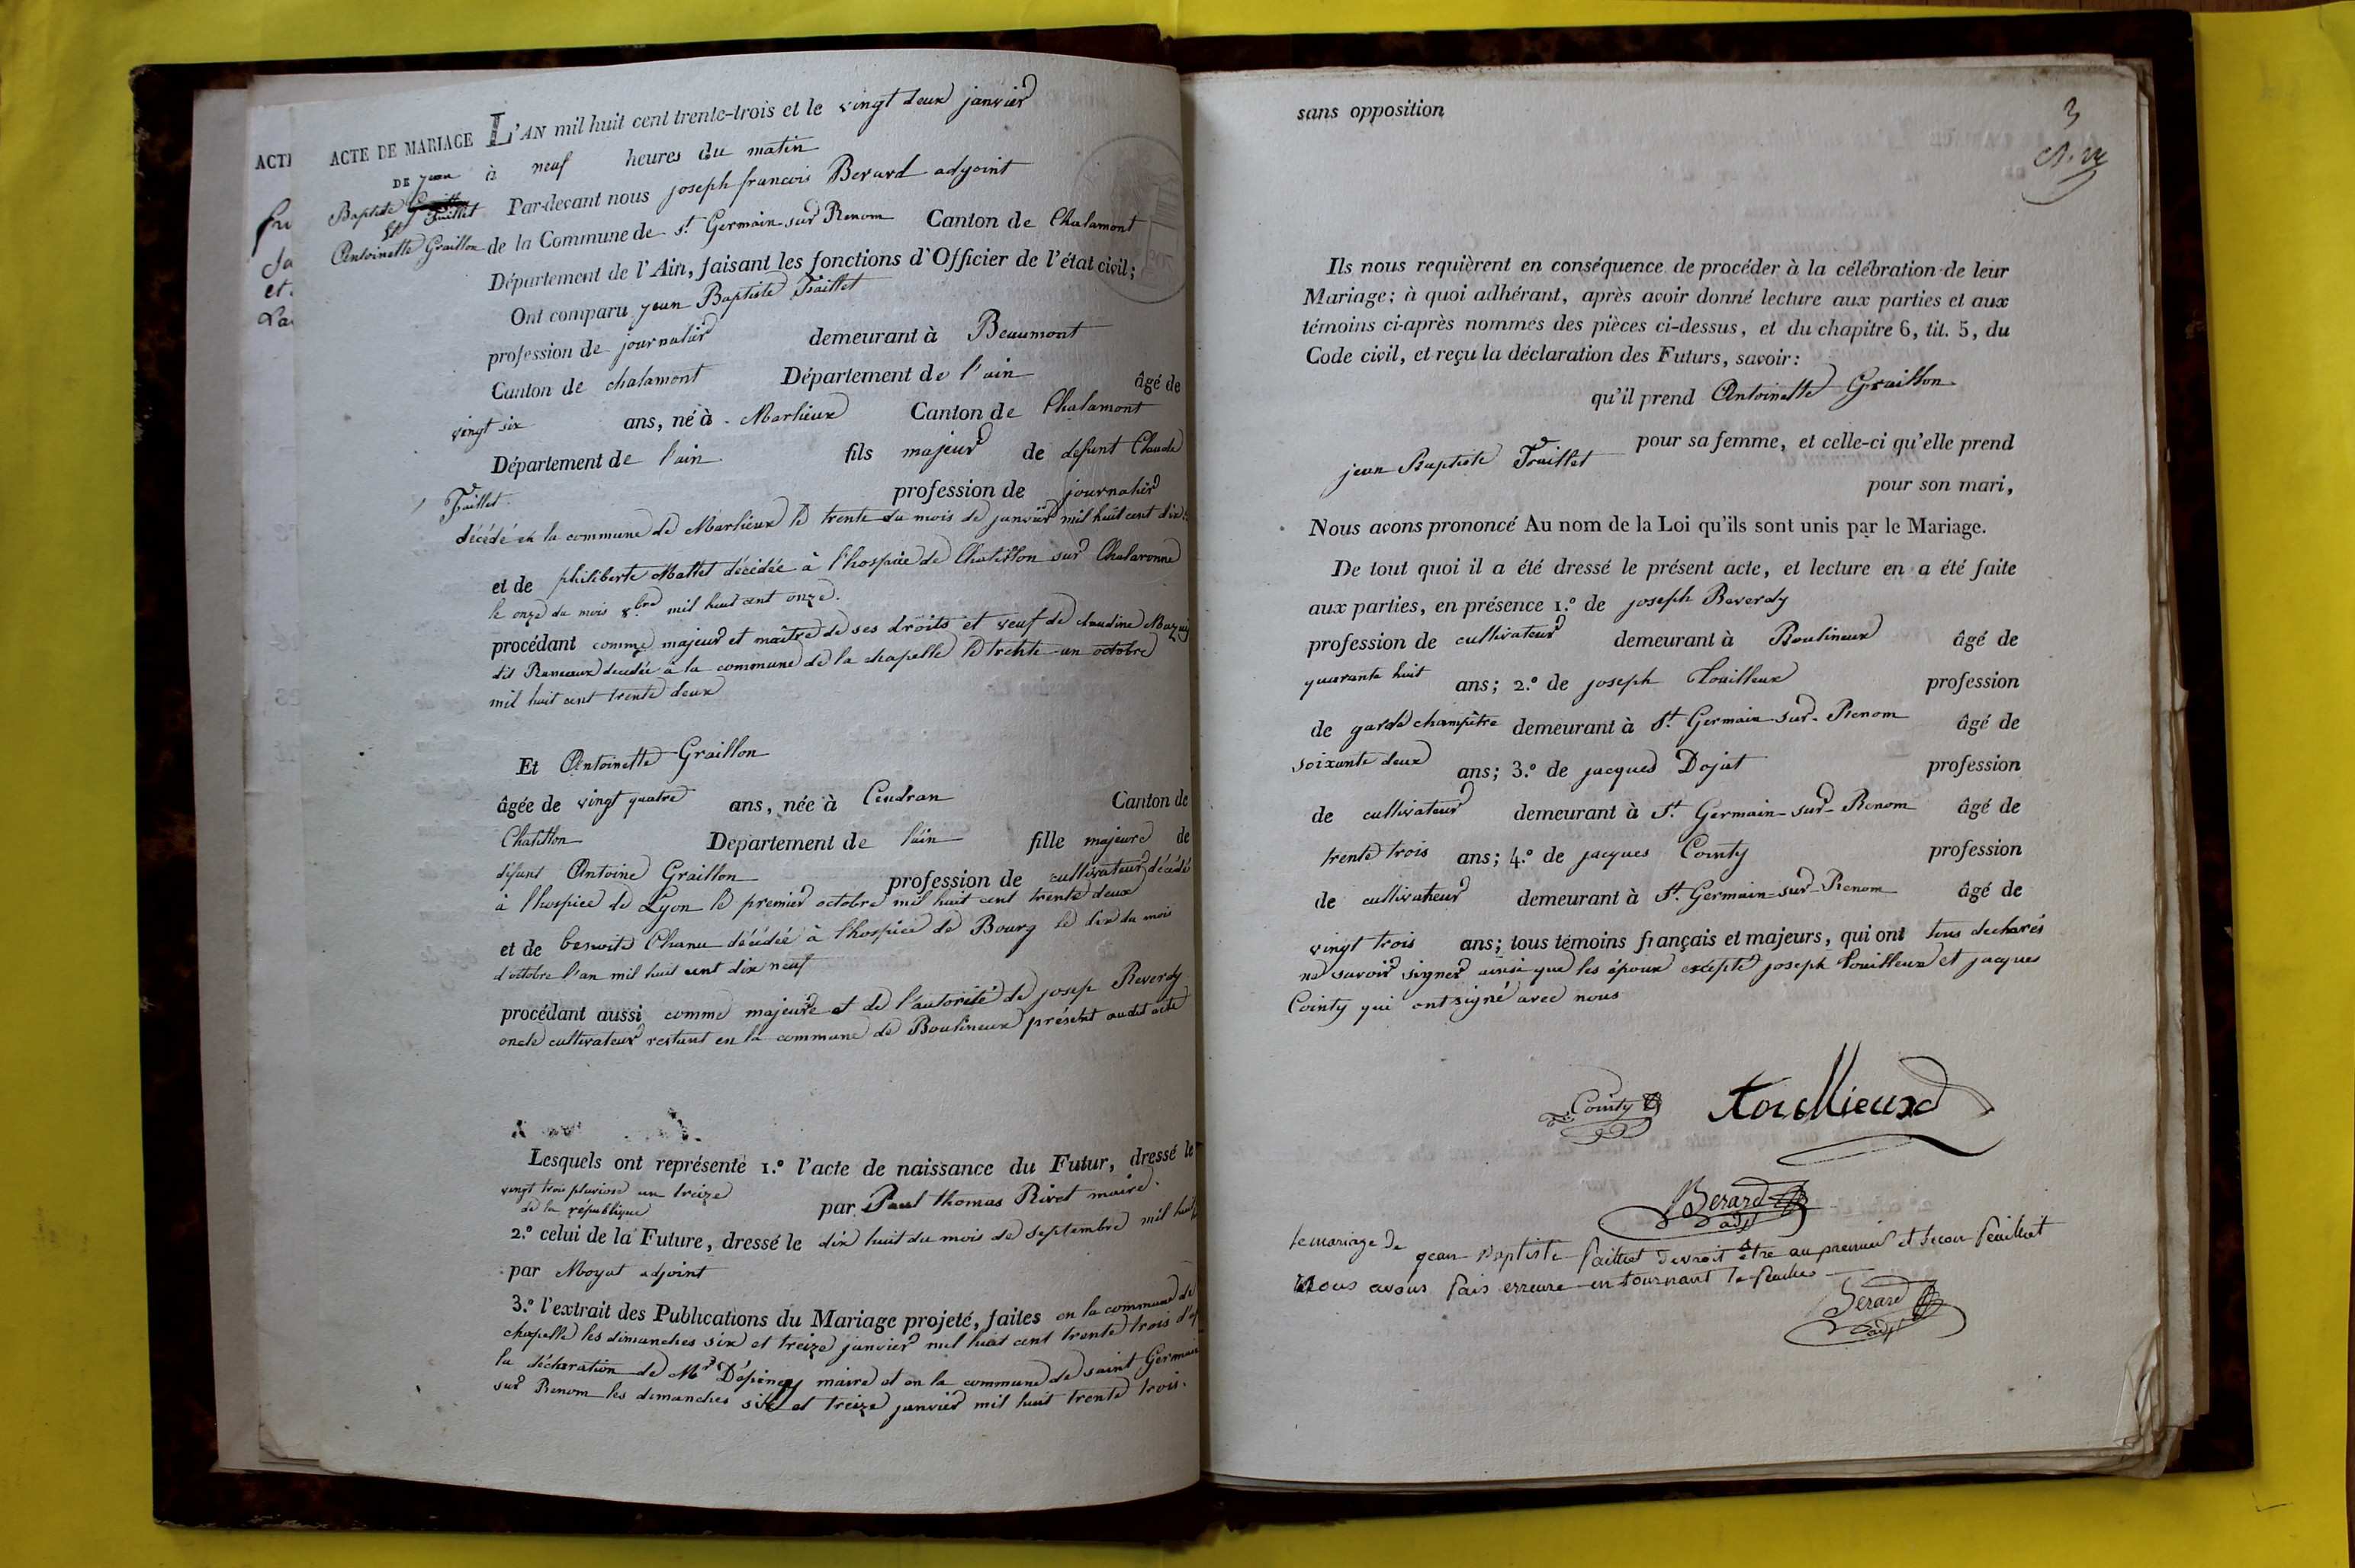 ACTE DE MARIAGE L'AN mil huit cent trente-trois et le vingt deux janvier
DE jean à neuf heures du matin
Baptiste
Faillet Par-devant nous joseph francois Berard adjoint
et
Antoinette Graillon de la Commune de St. Germain sur Renom Canton de Chalamont
Département de l'Ain, faisant les fonctions d'Officier de l'état civil;
Ont comparu jean Baptiste Faillet
profession de journalier demeurant à Beaumont
Canton de chalamont Département de l'ain âgé de
vingt six ans, né à Marlieux Canton de Chalamont
Département de l'ain fils majeur de defunt Claude
Faillet profession de journalier
décédé en la commune de Marlieux le trente du mois de janvier mil huit cent dix
et de philiberte Mallet décédée à l'hospice de Chatillon sur Chalaronne
le onze du mois 8bre mil huit cent onze.
procédant comme majeur et maître de ses droits et veuf de claudine
dit Rameaux decedée à la commune de la chapelle le trente un octobre
mil huit cent trente deux
Et Antoinette Graillon
âgée de vingt quatre ans, née à Condran Canton de
Chatillon Departement de l'ain fille majeure de
défunt Antoine Graillon profession de cultivateur décédé
à l'hospice de Lyon le premier octobre mil huit cent trente deux
et de benoite Chanu décédée à l'hospice de Bourg le dix du mois
d'octobre l'an mil huit cent dix neuf
procédant aussi comme majeure et de l'autorité de josep Reverdy
oncle cultivateur restant en la commune de Boulineux présent audit acte
Lesquels ont représenté 1.º l'acte de naissance du Futur, dressé le
vingt trois pluviose an treize par Paul thomas Rivet maire.
de la république
2.º celui de la Future, dressé le dix huit du mois de septembre mil huit
par Moyat adjoint
3.º l'extrait des Publications du Mariage projeté, faites en la commune de
chapelle les dimanches six et treize janvier mil huit cent trente trois
la déclaration de Mr maire et en la commune de saint Germain
sur Renom les dimanches six et treize janvier mil huit trente trois.
sans opposition
3
Ils nous requièrent en conséquence de procéder à la célébration de leur
Mariage; à quoi adhérant, après avoir donné lecture aux parties et aux
témoins ci-après nommés des pièces ci-dessus, et du chapitre 6, tit. 5, du
Code civil, et reçu la déclaration des Futurs, savoir:
qu'il prend Antoinette Graillon
pour sa femme, et celle-ci qu'elle prend
jean Baptiste Faillet
pour son mari,
Nous avons prononcé Au nom de la Loi qu'ils sont unis par le Mariage.
De tout quoi il a été dressé le présent acte, et lecture en a été faite
aux parties, en présence 1.º de joseph Reverdy
profession de cultivateur demeurant à Boulineux âgé de
quarante huit ans; 2.º de joseph Touilleux profession
de garde champêtre demeurant à St. Germain-sur-Renom âgé de
soixante deux ans; 3.º de jacques Dojat profession
de cultivateur demeurant à St. Germain-sur-Renom âgé de
trente trois ans; 4.º de jacques Cointy profession
de cultivateur demeurant à St. Germain-sur-Renom âgé de
vingt trois ans; tous témoins français et majeurs, qui ont tous declarés
ne savoir signer ainsi que les époux excepté joseph Touilleux et jacques
Cointy qui ont signé avec nous
Cointy Touillieux
Berard
adjt
le mariage de jean Baptiste faillet devroit être au premier et secon feuillet
nous avons fais erreure en tournant le feuillet
Berard
adjt